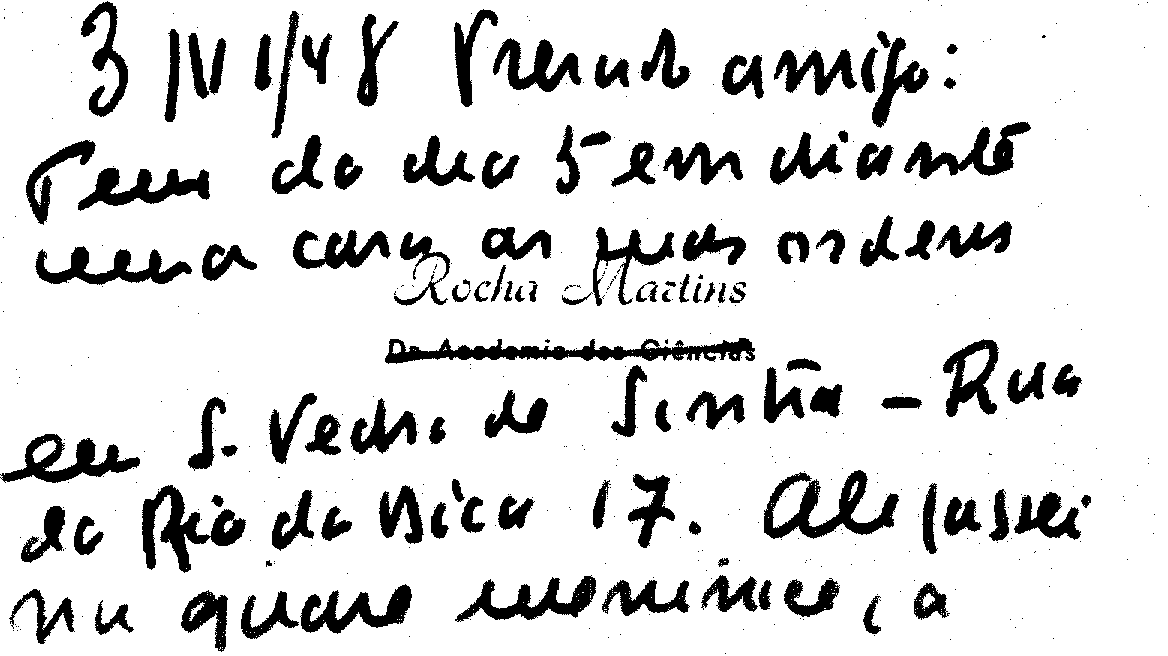 3/VII/48 Prezado amigo:
Tem do dia 5 em diante
uma casa às suas ordens
Rocha Martins
Da Academia das Ciências
em S. Pedro de Sintra – Rua
do Rio da Bica 17. Ali passei
na quase meninice, a